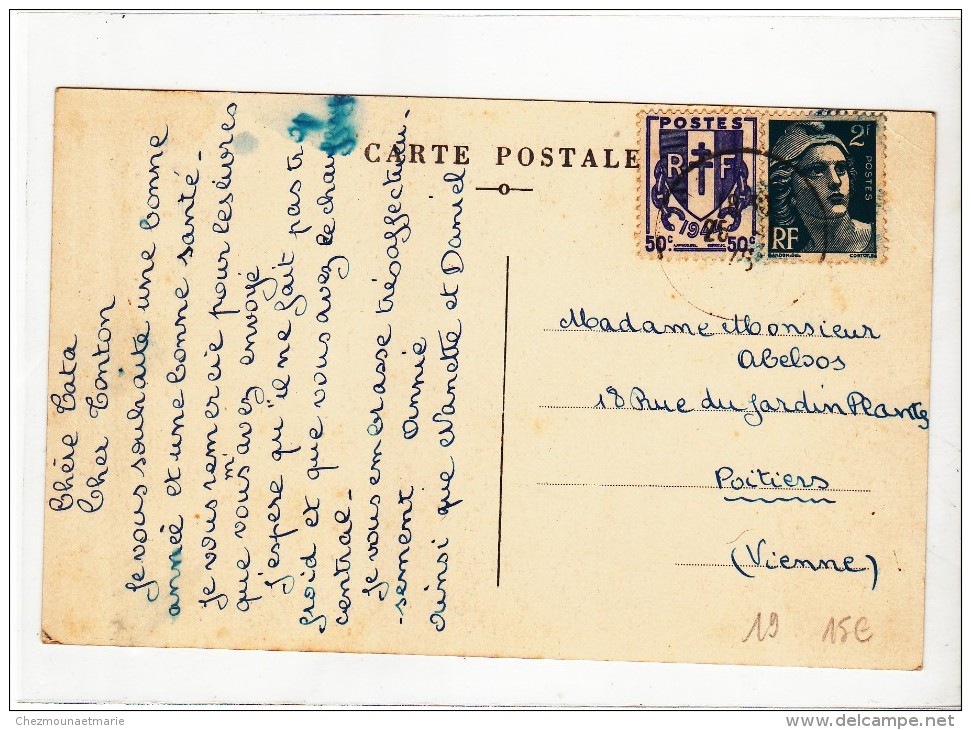 CARTE POSTALE
Chère Tata
Cher Tonton
Je vous souhaite une bonne
année et une bonne santé.
Je vous remercie pour les livres
que vous m'avez envoyé
J'espere qu'il ne fait pas tr
froid et que vous avez le chau
central.
Je vous embrasse trés affectueu
-sement Annie
Ainsi que Nanette et Daniel
POSTES
RF
194
50c 50c
2F
POSTES
RF
Madame Monsieur
Abeloos
18 Rue du Jardin Plantes
Poitiers
(Vienne)
19 15€
Chezmounaetmarie
delcampe.net